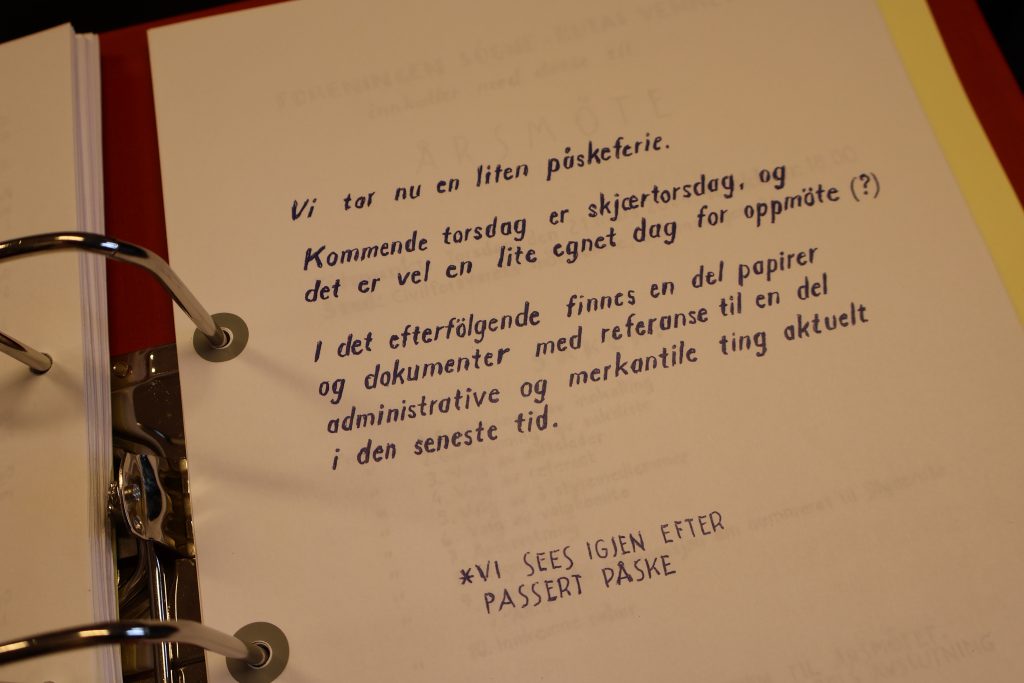 Vi tar nu en liten påskeferie.
Kommende torsdag er skjærtorsdag, og
det er vel en lite egnet dag for oppmöte (?)
I det efterfölgende finnes en del papirer
og dokumenter med referanse til en del
administrative og merkantile ting aktuelt
i den seneste tid.
*VI SEES IGJEN EFTER
PASSERT PÅSKE
ÅRSMÖTE